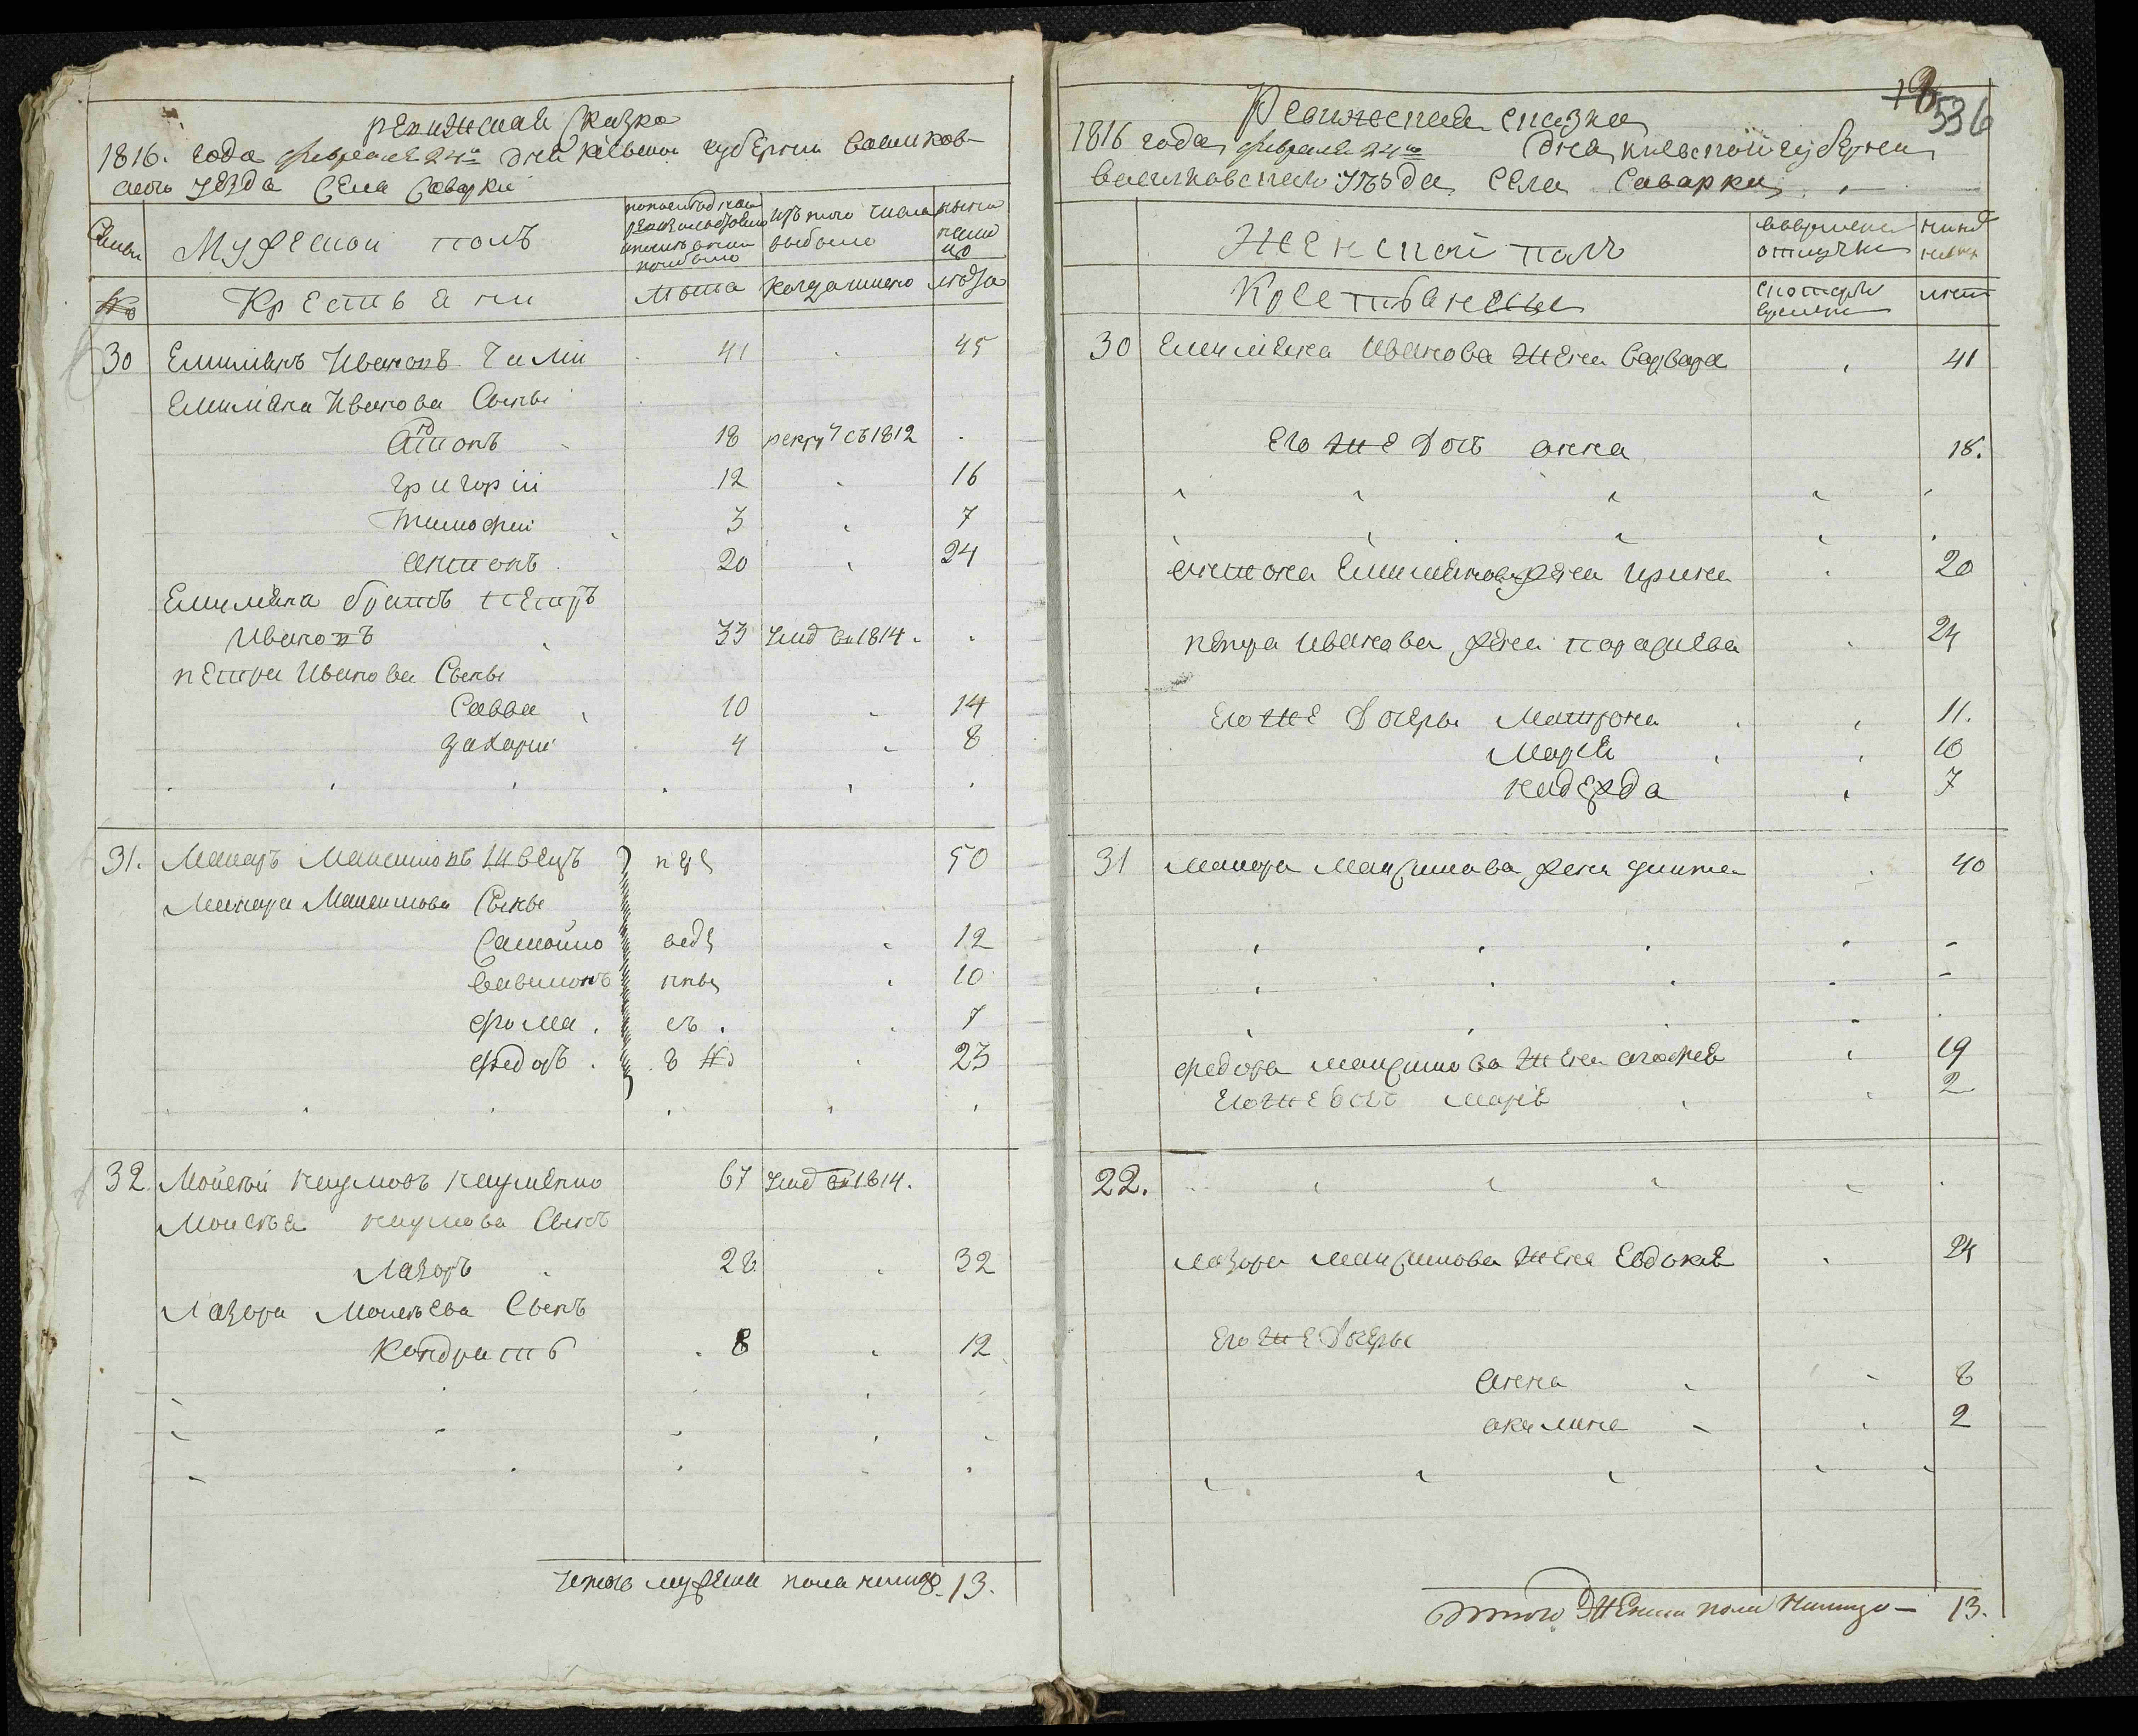 ревижская Сказка
1816. года февраля 24го дня кіевской губернии василков-
ского уезда Села Саварки
Семьи
Мужескои полъ
изъ того числа
выбыло
ныне
лицо
№
Крестьяни
лета
когда имено
лета
30 Емилианъ Ивановъ 41 45
Емилиана Иванова Сыны
18 рекру съ 1812
григорій 12 16
тимофеи 3 7
антонъ 20 24
Емилияна братъ петръ
Ивановъ 33 Умр въ 1814
петра Иванова Сыны
Савва 10 14
захарии 4 8
31. Макаръ Максимовъ Швецъ 50
Макара Максимова Сыны
Самойло 12
вавилонъ 10
фома 7
федоръ 23
32 Мойсей наумовъ науменко 67 Умр въ 1814.
Моисея наумова Сынъ
Лазоръ 28 32
Лазора Моисеева Сынъ
Кондратъ 8 12
Итого мужеска пола налицо 13.
536
Ревижская сказка
1816 года февраля 24го дня киевской губернеи
василковскаго уезда села Саварки
Женской полъ
вовремени
отлучки
Крестьянски
скотори
времени
лета
30 Емилияна Иванова жена варвара 41
Его же дочь анна 18.
антона Емилиянова жена ирина 20
петра Иванова жена парасцева 24
Его же дочеры Матрона 11.
Мария 10
надежда 7
31 Макара Максимова жена 40
федора Максимова жена агафия 19
Его же дочь Мария 2
22.
Лазора Максимова жена Евдокия 24
Его же дочеры
анна 8
акилина 2
Итого Женска пола налицо — 13.